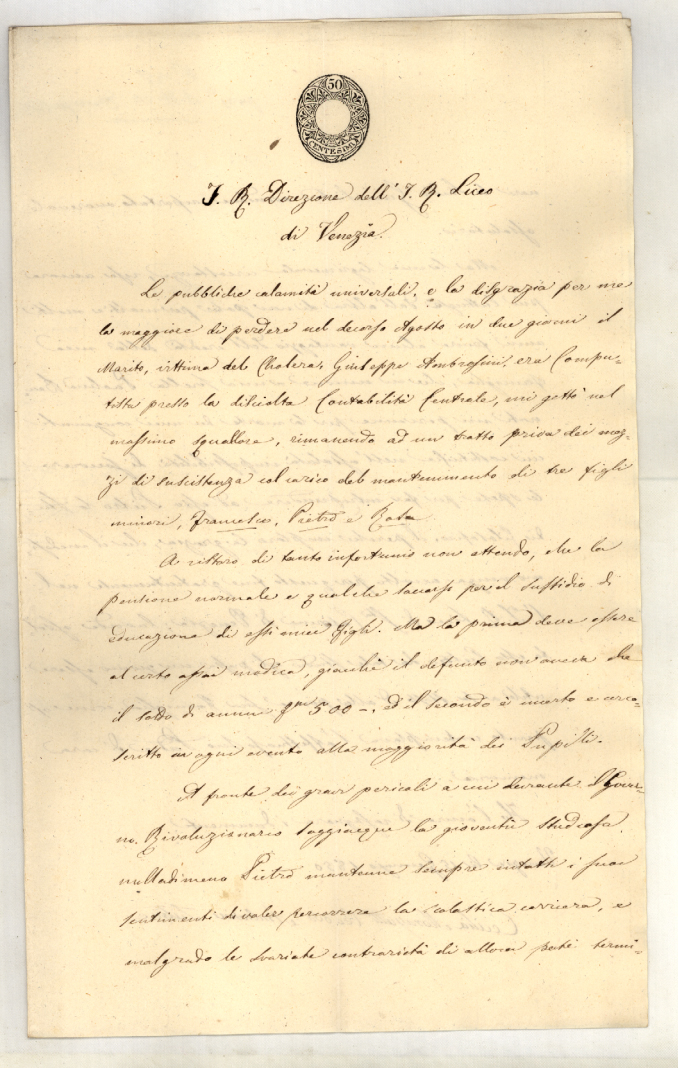 50
CENTESIMI
I. R. Direzione dell' I. R. Liceo
di Venezia.
Le pubbliche calamità universali, e la disgrazia per me
la maggiore di perdere nel decorso Agosto in due giorni il
Marito, vittima del Cholera, Giuseppe Ambrosini, era Compu-
tista presso la disciolta Contabilità Centrale, mi gettò nel
massimo squallore, rimanendo ad un tratto priva dei mez-
zi di sussistenza col carico del mantenimento di tre figli
minori, Francesco, Pietro e Rosa.
A ristoro di tanto infortunio non attendo, che la
pensione normale e qualche soccorso per il sussidio di
educazione di essi miei figli. Ma la prima deve essere
al certo assai modica, giacchè il defunto non aveva che
il soldo di annui 500 –, ed il secondo è incerto e circo-
scritto in ogni evento alla maggiorità dei Pupilli.
A fronte dei gravi pericoli a cui durante il Gover-
no Rivoluzionario soggiacque la gioventù studiosa,
nulladimeno Pietro mantenne sempre intatti i suoi
sentimenti di voler percorrere la scolastica carriera, e
malgrado le svariate contrarietà di allora potè termi-